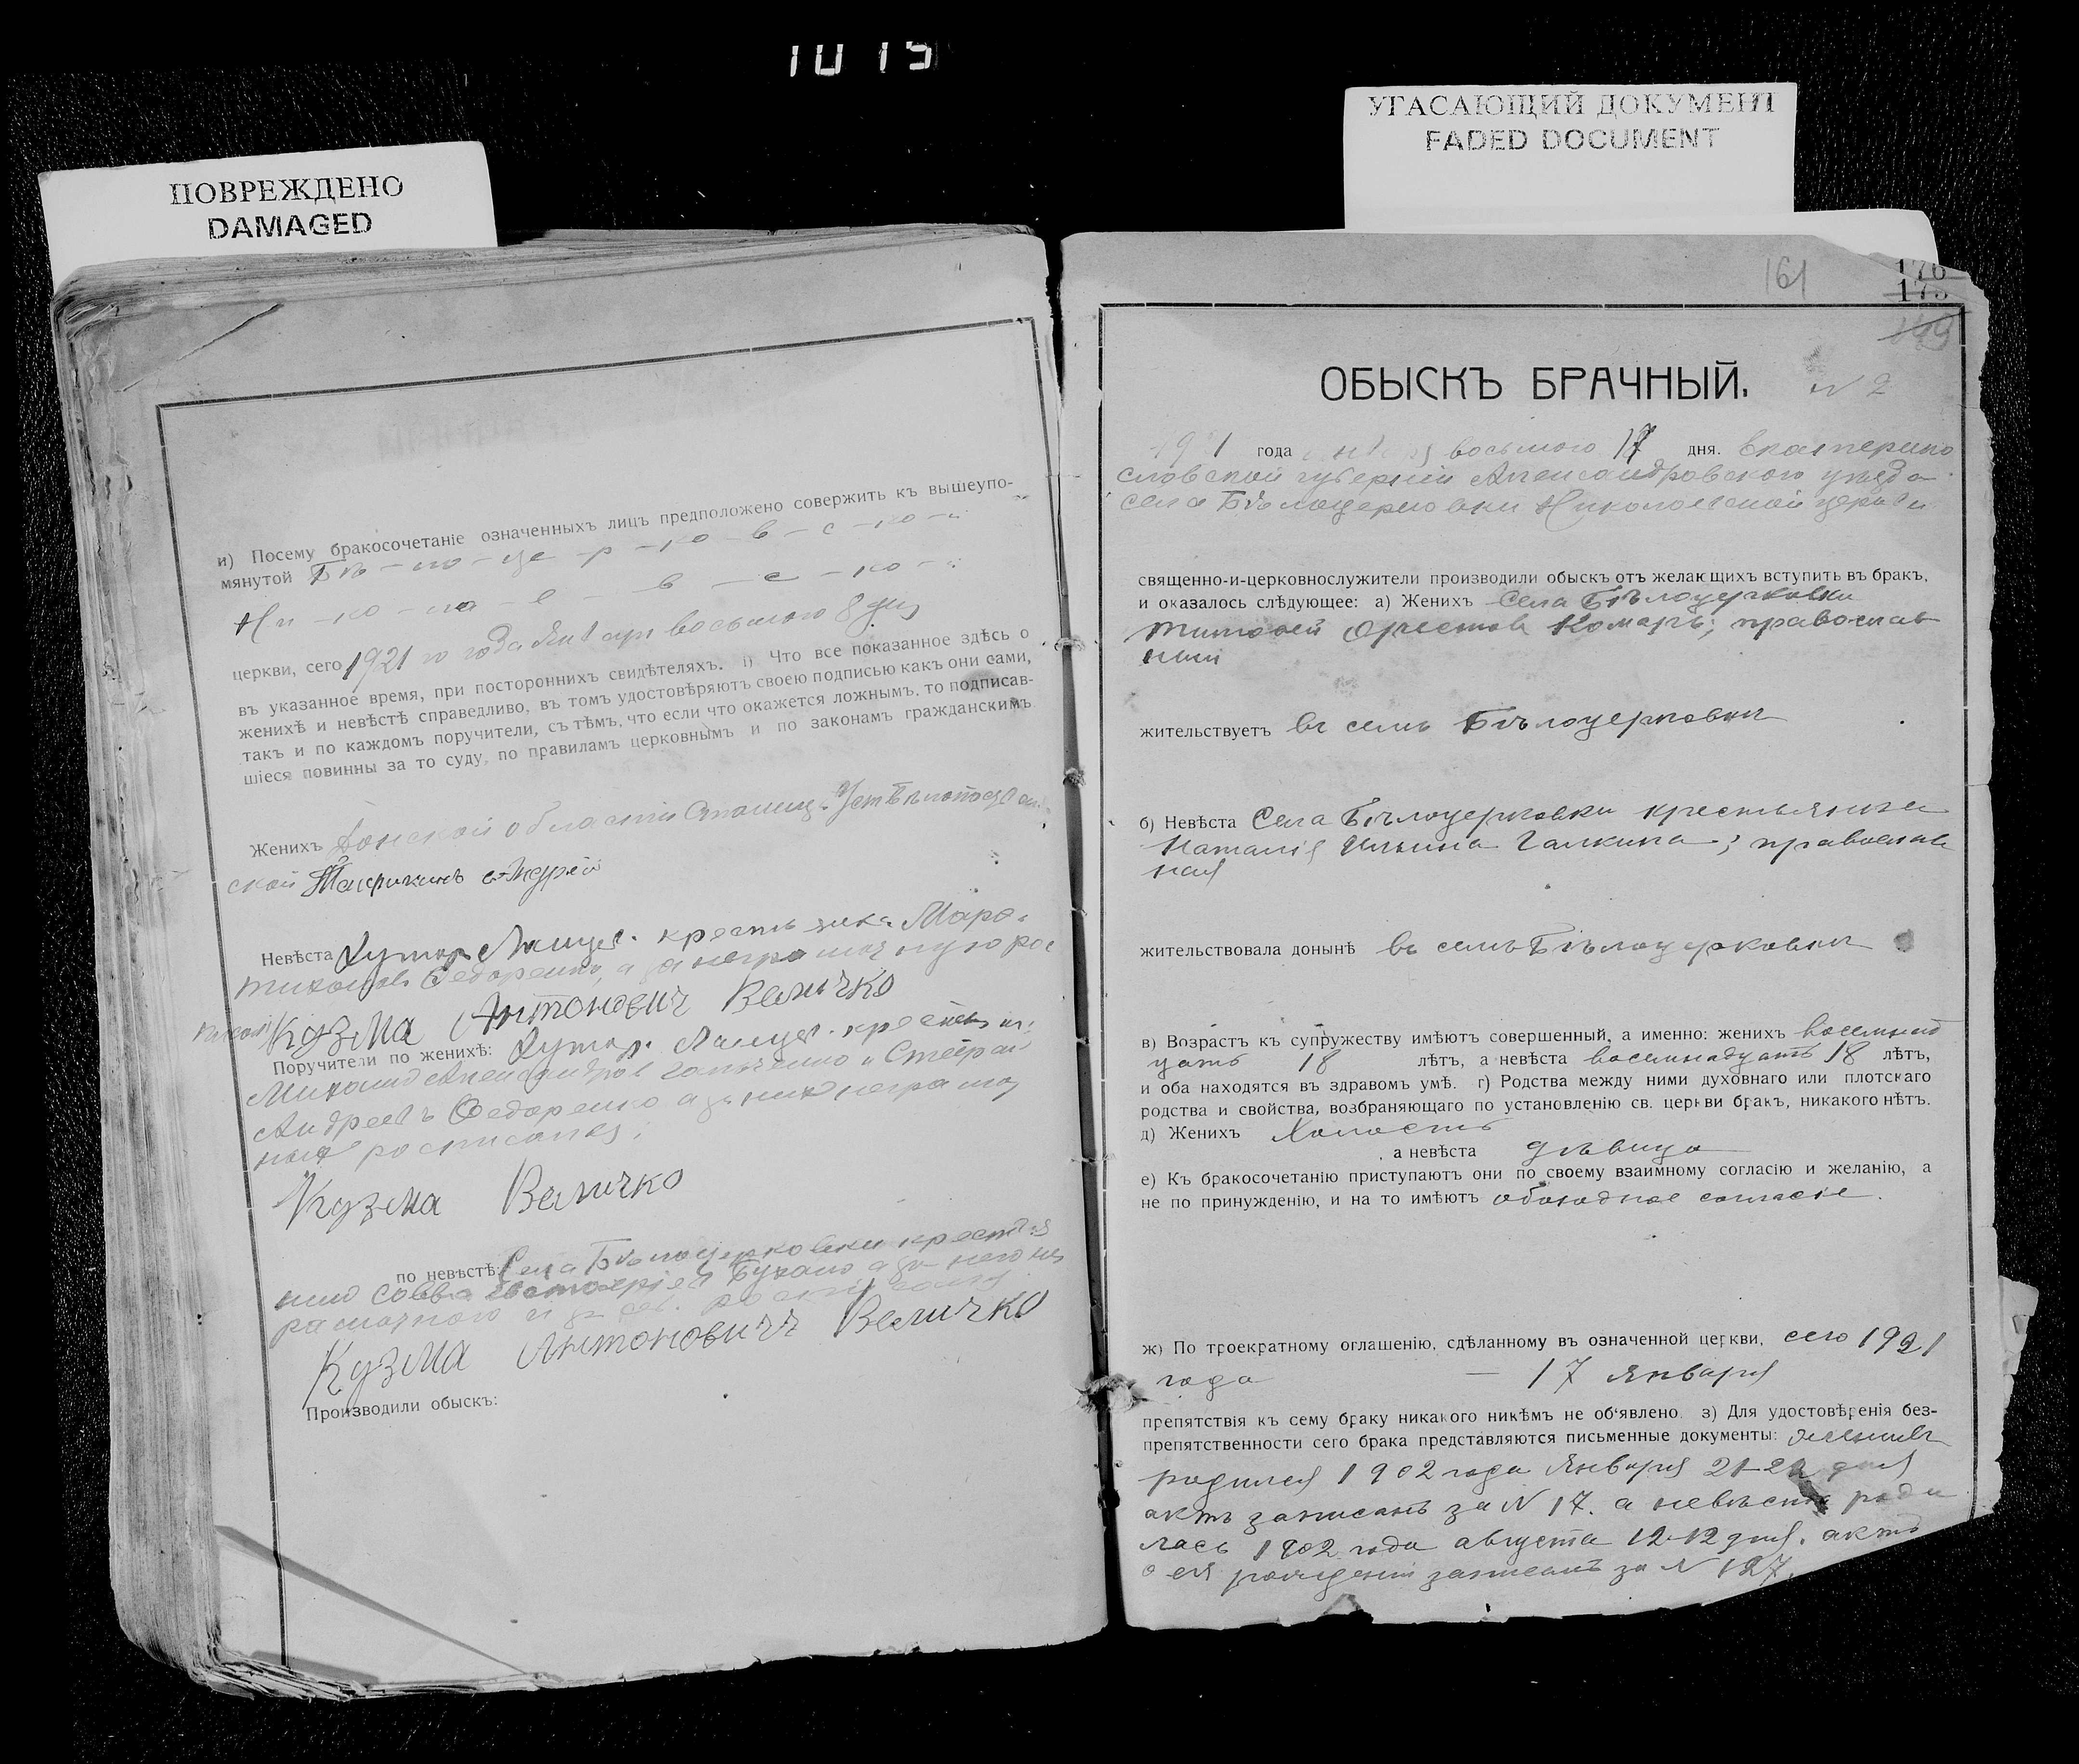 1015
ПОВРЕЖДЕНО
DAMAGED
УГАСАЮЩИЙ ДОКУМЕНТ
FADED DOCUMENT
и) Посему бракосочетаніе означенныхъ лицъ предположено совержить къ вышеупо-
мянутой Бѣ-ло-це-р-ко-в-с-ко-й
Ни-ко-ла-е-в-с-ко-й
церкви, сего 1921 го года Января восьмого 8 дня
въ указанное время, при постороннихъ свидѣтеляхъ. і) Что все показанное здѣсь о
женихѣ и невѣстѣ справедливо, въ томъ удостовѣряютъ своею подписью какъ они сами,
такъ и по каждомъ поручители, съ тѣмъ, что если что окажется ложнымъ, то подписав-
шіеся повинны за то суду, по правиламъ церковнымъ и по законамъ гражданскимъ
Женихъ Донской области Станиц.
ской Андрей
Невѣста Хутор. крестьянка
Федоренко, а за неграмотную рос
Кузма Антоновичъ Величко
Поручители по женихѣ: Хутор.
Михаилъ Александровъ и Стефанъ
Андреевъ Федоренко а за них неграмот
ных росписался
Кузма Величко
по невѣстѣ: Села Бѣлоцерковки крестья
нинъ Савва а за него нег
рамотного и за себ. росписался
Кузма Антоновичъ Величко
Производили обыскъ:
161
176
175
149
ОБЫСКЪ БРАЧНЫЙ.
N 2
1921 года Января восьмого 17 дня. Екатерино
славской губерніи Александровского уѣзда
села Бѣлоцерковки Николаевской церкви
священно-и-церковнослужители производили обыскъ отъ желающихъ вступить въ бракъ,
и оказалось слѣдующее: а) Женихъ Села Бѣлоцерковки
Тимофей Орестовъ Комаръ; православ
ный
жительствуетъ въ селѣ Бѣлоцерковки
б) Невѣста Села Бѣлоцерковки крестьянка
Наталія Ильина Галкина; православ
ная
жительствовала донынѣ въ селѣ Бѣлоцерковки
в) Возрастъ къ супружеству имѣютъ совершенный, а именно: женихъ восемнад
цать 18 лѣтъ, а невѣста восемнадцать 18 лѣтъ,
и оба находятся въ здравомъ умѣ. г) Родства между ними духовнаго или плотскаго
родства и свойства, возбраняющаго по установленію св. церкви бракъ, никакого нѣтъ.
д) Женихъ Холостъ
а невѣста дѣвица
е) Къ бракосочетанію приступаютъ они по своему взаимному согласію и желанію, а
не по принужденію, и на то имѣютъ обоюдное согласіе.
ж) По троекратному оглашенію, сдѣланному въ означенной церкви, сего 1921
года — 17 Января
препятствія къ сему браку никакого никѣмъ не об'явлено. з) Для удостовѣренія без-
препятственности сего брака представляются письменные документы: женихъ
родился 1902 года Января 21-22 дня
актъ записанъ за N 17. а невѣста роди
лась 1902 года августа 12-12 дня. актъ
о ея рожденіи записанъ за N 127.